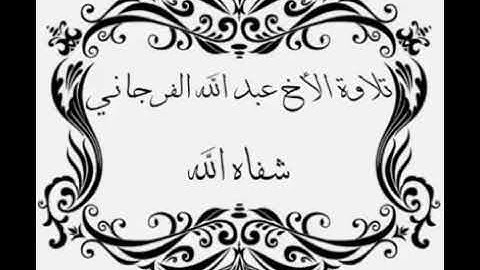 تلاوة الأخ عبد الله الفرجاني
شفاه الله